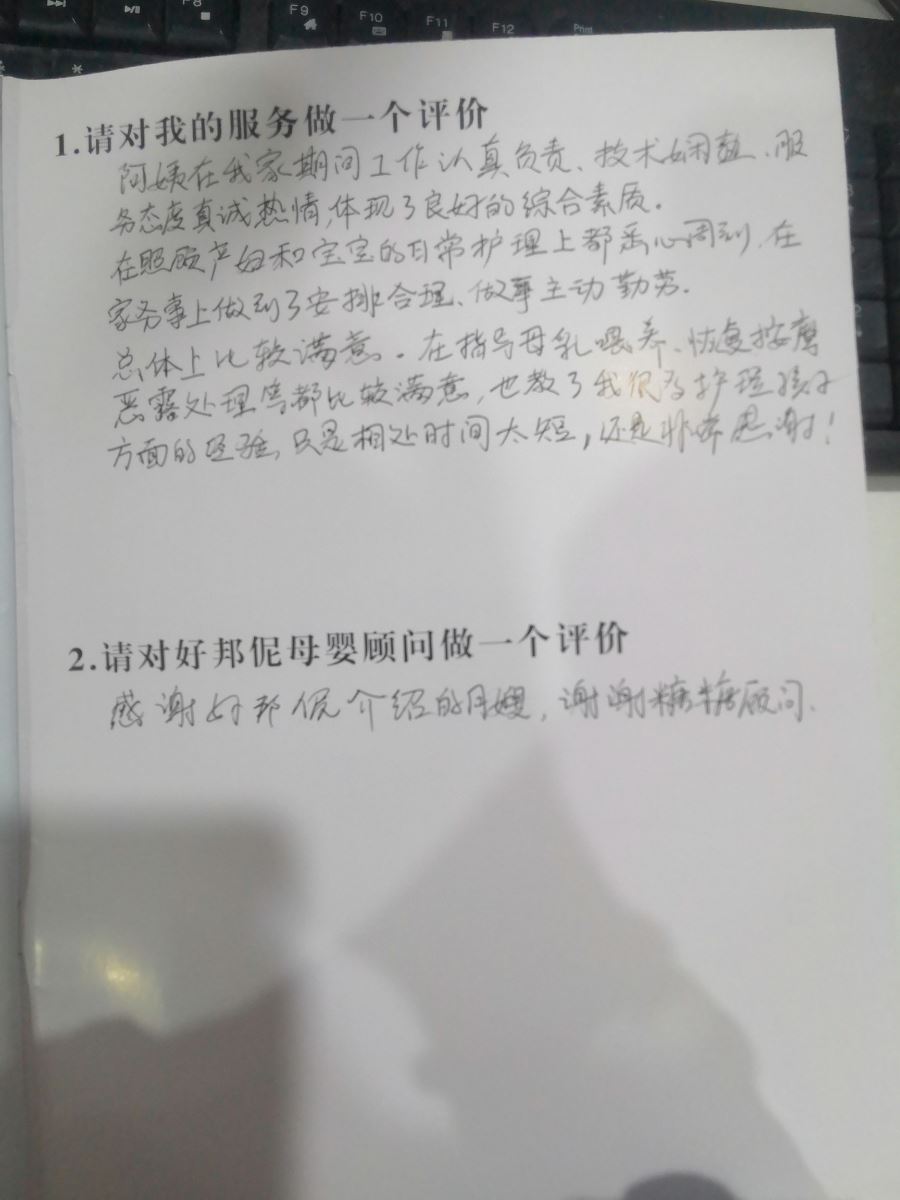 F8
F9
F10
F11
F12
Prnt
1.请对我的服务做一个评价
阿姨在我家期间工作认真负责、技术娴熟、服
务态度真诚热情,体现了良好的综合素质。
在照顾产妇和宝宝的日常护理上都悉心周到,在
家务事上做到了安排合理、做事主动勤劳.
总体上比较满意。在指导母乳喂养、恢复按摩
恶露处理等都比较满意,也教了我很多护理孩子
方面的经验,只是相处时间太短,还是非常感谢!
2.请对好邦伲母婴顾问做一个评价
感谢好邦伲介绍的月嫂,谢谢糖糖顾问.